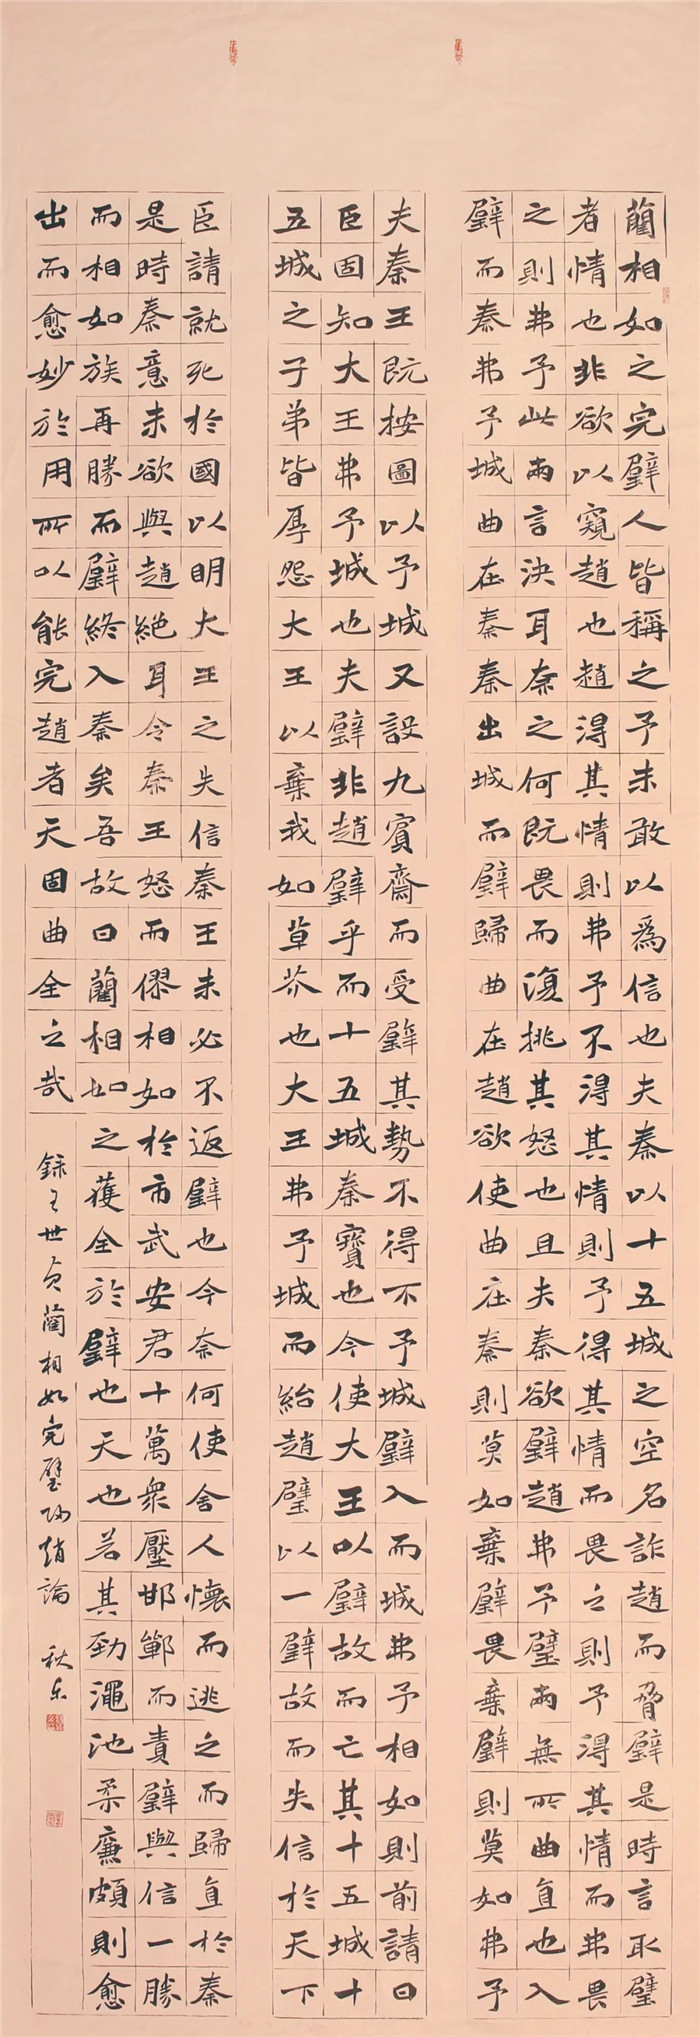 藺相如之完璧人皆稱之予未敢以爲信也夫秦以十五城之空名詐趙而脅璧是時言取璧
者情也非欲以窺趙也趙得其情則弗予不得其情則予得其情而畏之則予得其情而弗畏
之則弗予此兩言決耳奈之何既畏而復挑其怒也且夫秦欲璧趙弗予璧兩無所曲直也入
璧而秦弗予城曲在秦秦出城而璧歸曲在趙欲使曲在秦則莫如棄璧畏棄璧則莫如弗予
夫秦王既按圖以予城又設九賓齋而受璧其勢不得不予城璧入而城弗予相如則前請曰
臣固知大王弗予城也夫璧非趙璧乎而十五城秦寶也今使大王以璧故而亡其十五城十
五城之子弟皆厚怨大王以棄我如草芥也大王弗予城而紿趙璧以一璧故而失信於天下
臣請就死於國以明大王之失信秦王未必不返璧也今奈何使舍人懷而逃之而歸直於秦
是時秦意未欲與趙絕耳令秦王怒而僇相如於市武安君十萬眾壓邯鄲而責璧與信一勝
而相如族再勝而璧終入秦矣吾故曰藺相如之獲全於璧也天也若其勁澠池柔廉頗則愈
出而愈妙於用所以能完趙者天固曲全之哉
錄王世貞藺相如完璧歸趙論 秋樂